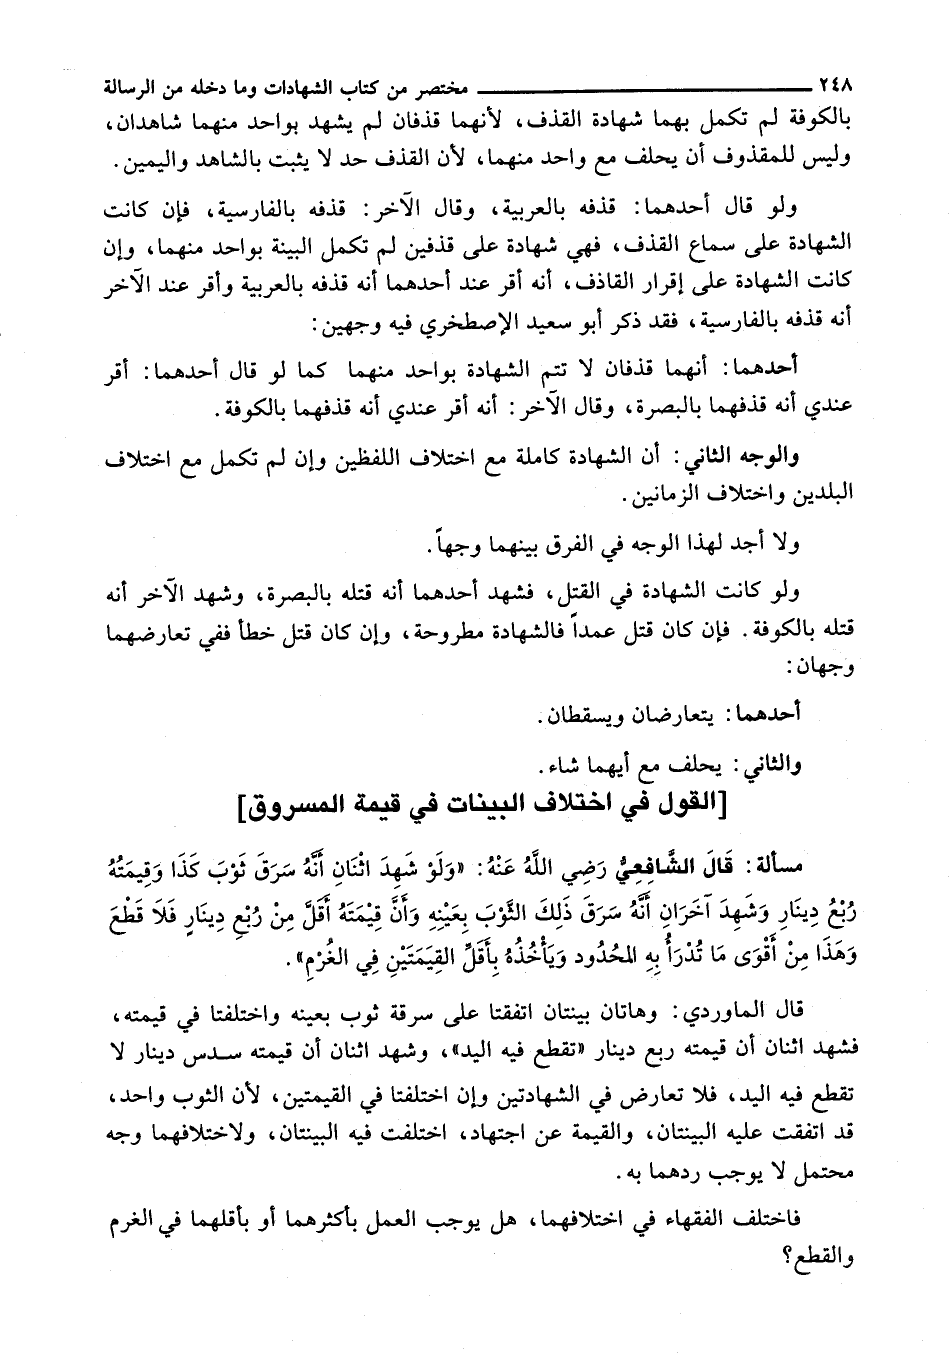 ٢٤٨ مختصر من كتاب الشهادات وما دخله من الرسالة
بالكوفة لم تكمل بهما شهادة القذف، لأنهما قذفان لم يشهد بواحد منهما شاهدان،
وليس للمقذوف أن يحلف مع واحد منهما، لأن القذف حد لا يثبت بالشاهد واليمين.
ولو قال أحدهما: قذفه بالعربية، وقال الآخر: قذفه بالفارسية، فإن كانت
الشهادة على سماع القذف، فهي شهادة على قذفين لم تكمل البينة بواحد منهما، وإن
كانت الشهادة على إقرار القاذف، أنه أقر عند أحدهما أنه قذفه بالعربية وأقر عند الآخر
أنه قذفه بالفارسية، فقد ذكر أبو سعيد الإصطخري فيه وجهين:
أحدهما: أنهما قذفان لا تتم الشهادة بواحد منهما كما لو قال أحدهما: أقر
عندي أنه قذفهما بالبصرة، وقال الآخر: أنه أقر عندي أنه قذفهما بالكوفة.
والوجه الثاني: أن الشهادة كاملة مع اختلاف اللفظين وإن لم تكمل مع اختلاف
البلدين واختلاف الزمانين.
ولا أجد لهذا الوجه في الفرق بينهما وجهاً.
ولو كانت الشهادة في القتل، فشهد أحدهما أنه قتله بالبصرة، وشهد الآخر أنه
قتله بالكوفة. فإن كان قتل عمداً فالشهادة مطروحة، وإن كان قتل خطأ ففي تعارضهما
وجهان:
أحدهما: يتعارضان ويسقطان.
والثاني: يحلف مع أيهما شاء.
[القول في اختلاف البينات في قيمة المسروق]
مسألة: قَالَ الشَّافِعِيُّ رَضِي اللَّهُ عَنْهُ: «وَلَوْ شَهِدَ اثْنَانِ أَنَّهُ سَرَقَ ثَوْبَ كَذَا وَقِيمَتُهُ
رُبْعُ دِينَارٍ وَشَهِدَ آخَرَانِ أَنَّهُ سَرَقَ ذَلِكَ الثَّوْبَ بِعَيْنِهِ وَأَنَّ قِيْمَتَهُ أَقَلَّ مِنْ رُبْعِ دِينَارٍ فَلَا قَطْعَ
وَهَذَا مِنْ أَقْوَى مَا تُدْرَأُ بِهِ الحُدُود وَيَأْخُذُهُ بِأَقَلِّ القِيَمَتَيْنِ فِي الغُرْمِ».
قال الماوردي: وهاتان بينتان اتفقتا على سرقة ثوب بعينه واختلفتا في قيمته،
فشهد اثنان أن قيمته ربع دينار «تقطع فيه اليد»، وشهد اثنان أن قيمته سدس دينار لا
تقطع فيه اليد، فلا تعارض في الشهادتين وإن اختلفتا في القيمتين، لأن الثوب واحد،
قد اتفقت عليه البينتان، والقيمة عن اجتهاد، اختلفت فيه البينتان، ولاختلافهما وجه
محتمل لا يوجب ردهما به.
فاختلف الفقهاء في اختلافهما، هل يوجب العمل بأكثرهما أو بأقلهما في الغرم
والقطع؟